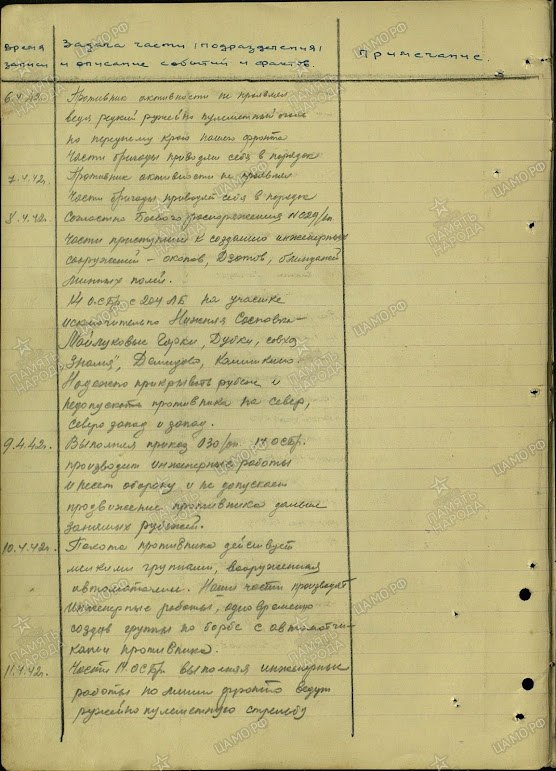 Время записи
Задача части (подразделения)
и описание событий и фактов.
Примечание.
6.4.42. Противник активности не проявлял
ведя редкий ружейно пулеметный огонь
по переднему краю нашего фронта
Части бригады приводили себя в порядок
7.4.42г. Противник активности не проявлял
Части бригады приводят себя в порядок
8.4.42г. Согласно боевого распоряжения №029/оп
части приступили к созданию инженерных
сооружений – окопов, Дзотов, блиндажей
минных полей.
14 ОСБр с 204 ЛБ на участке
исключительно Нижняя Сосновка –
Горки, Дубки, совхоз
Знамя", Демидово,
Надежно прикрывать рубеж и
недопускать противника на север,
северо запад и запад.
9.4.42г. Выполняя приказ 030/оп 14 ОСБр.
производит инженерные работы
и несет оборону и не допускает
продвижение противника дальше
занятых рубежей.
10.4.42г. Пехота противника действует
мелкими группами, вооруженная
автоматами. Наши части производят
инженерные работы, одновременно
создав группы по борьбе с автоматчи-
ками противника.
11.4.42г. Части 14 ОСБр. выполняя инженерные
работы по линии фронта ведут
ружейно пулеметную стрельбу
ПАМЯТЬ НАРОДА
ЦАМО РФ